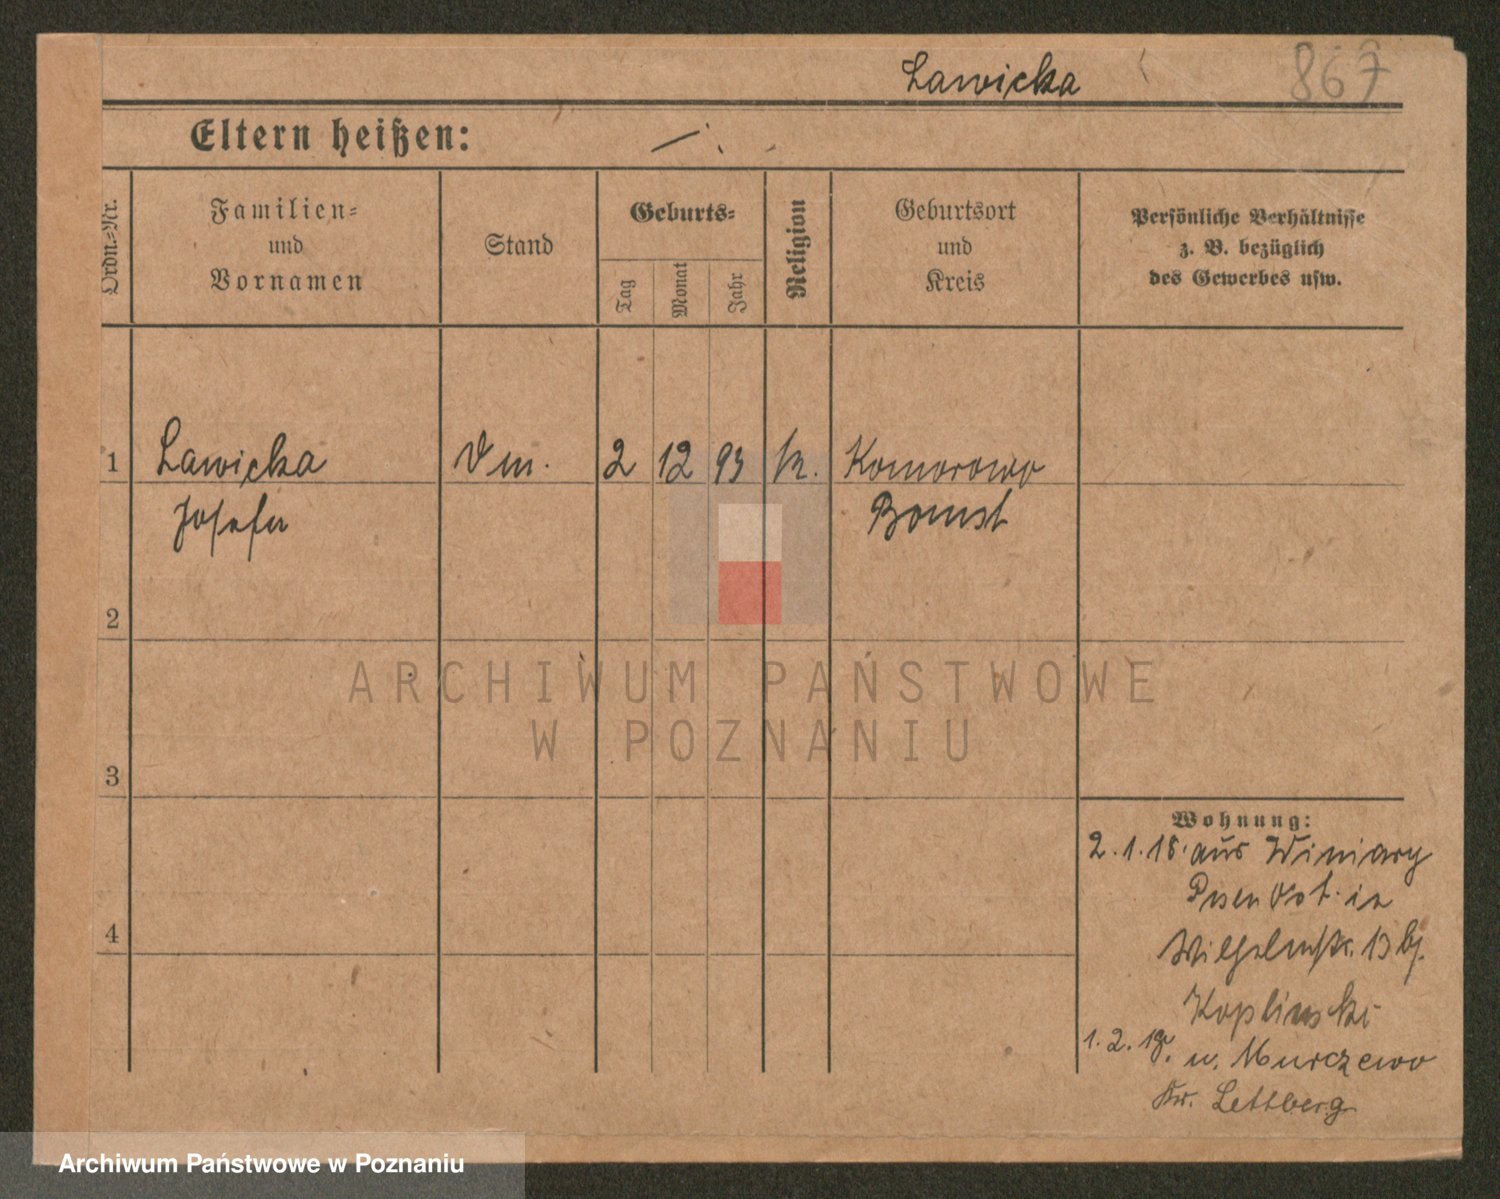 Lawicka 867
Eltern heißen:
Ordn.-Nr.
Familien-
und
Vornamen
Stand
Geburts-
Tag
Monat
Jahr
Religion
Geburtsort
und
Kreis
Persönliche Verhältnisse
z. B. bezüglich
des Gewerbes usw.
1 Lawicka 2 12 93 k. Komorowo
Josefa Bomst
2
3
4
Wohnung:
2.1.18. aus Winiary
Posen Ost in
Wilhelmstr. 13 bj.
Koplinski
1.2.18. n. Murczewo
Kr.
ARCHIWUM PAŃSTWOWE
W POZNANIU
Archiwum Państwowe w Poznaniu